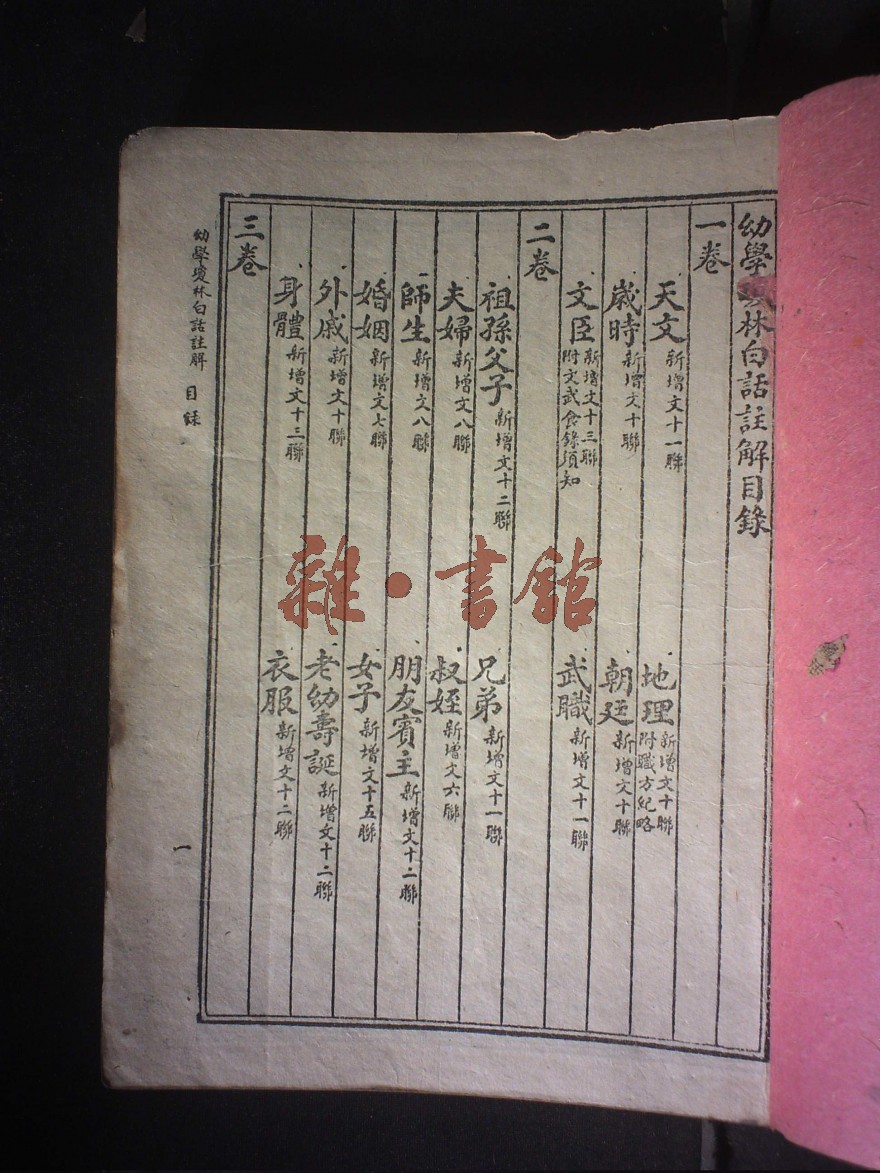 幼學瓊林白話註解目錄
一卷
天文 新增文十一聯
地理 新增文十聯 附職方紀略
歲時 新增文十聯
朝廷 新增文十聯
文臣 新增文十三聯 附文武食錄須知
武職 新增文十一聯
二卷
祖孫父子 新增文十二聯
兄弟 新增文十一聯
夫婦 新增文八聯
叔姪 新增文六聯
師生 新增文八聯
朋友賓主 新增文十二聯
婚姻 新增文七聯
女子 新增文十五聯
外戚 新增文十聯
老幼壽誕 新增文十二聯
身體 新增文十三聯
衣服 新增文十二聯
三卷
幼學瓊林白話註解 目錄
一
雜·書館